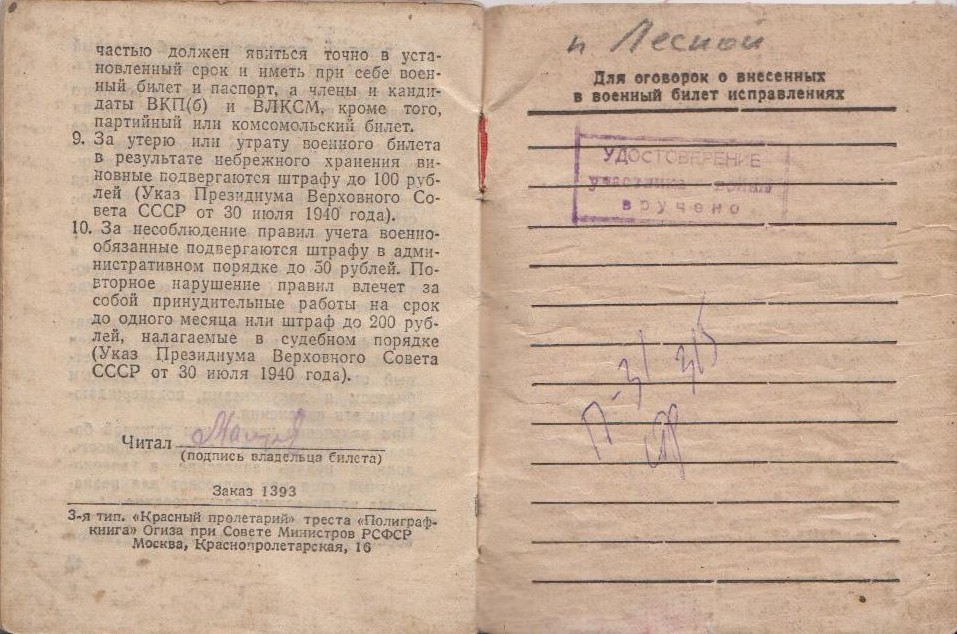 частью должен явиться точно в уста-
новленный срок и иметь при себе воен-
ный билет и паспорт, а члены и канди-
даты ВКП(б) и ВЛКСМ, кроме того,
партийный или комсомольский билет.
9. За утерю или утрату военного билета
в результате небрежного хранения ви-
новные подвергаются штрафу до 100 руб-
лей (Указ Президиума Верховного Со-
вета СССР от 30 июля 1940 года).
10. За несоблюдение правил учета военно-
обязанные подвергаются штрафу в адми-
нистративном порядке до 50 рублей. По-
вторное нарушение правил влечет за
собой принудительные работы на срок
до одного месяца или штраф до 200 руб-
лей, налагаемые в судебном порядке
(Указ Президиума Верховного Совета
СССР от 30 июля 1940 года).
Читал
(подпись владельца билета)
Заказ 1393
3-я тип. «Красный пролетарий» треста «Полиграф-
книга» Огиза при Совете Министров РСФСР
Москва, Краснопролетарская, 16
п Лесной
Для оговорок о внесенных
в военный билет исправлениях
УДОСТОВЕРЕНИЕ
участника войны
вручено